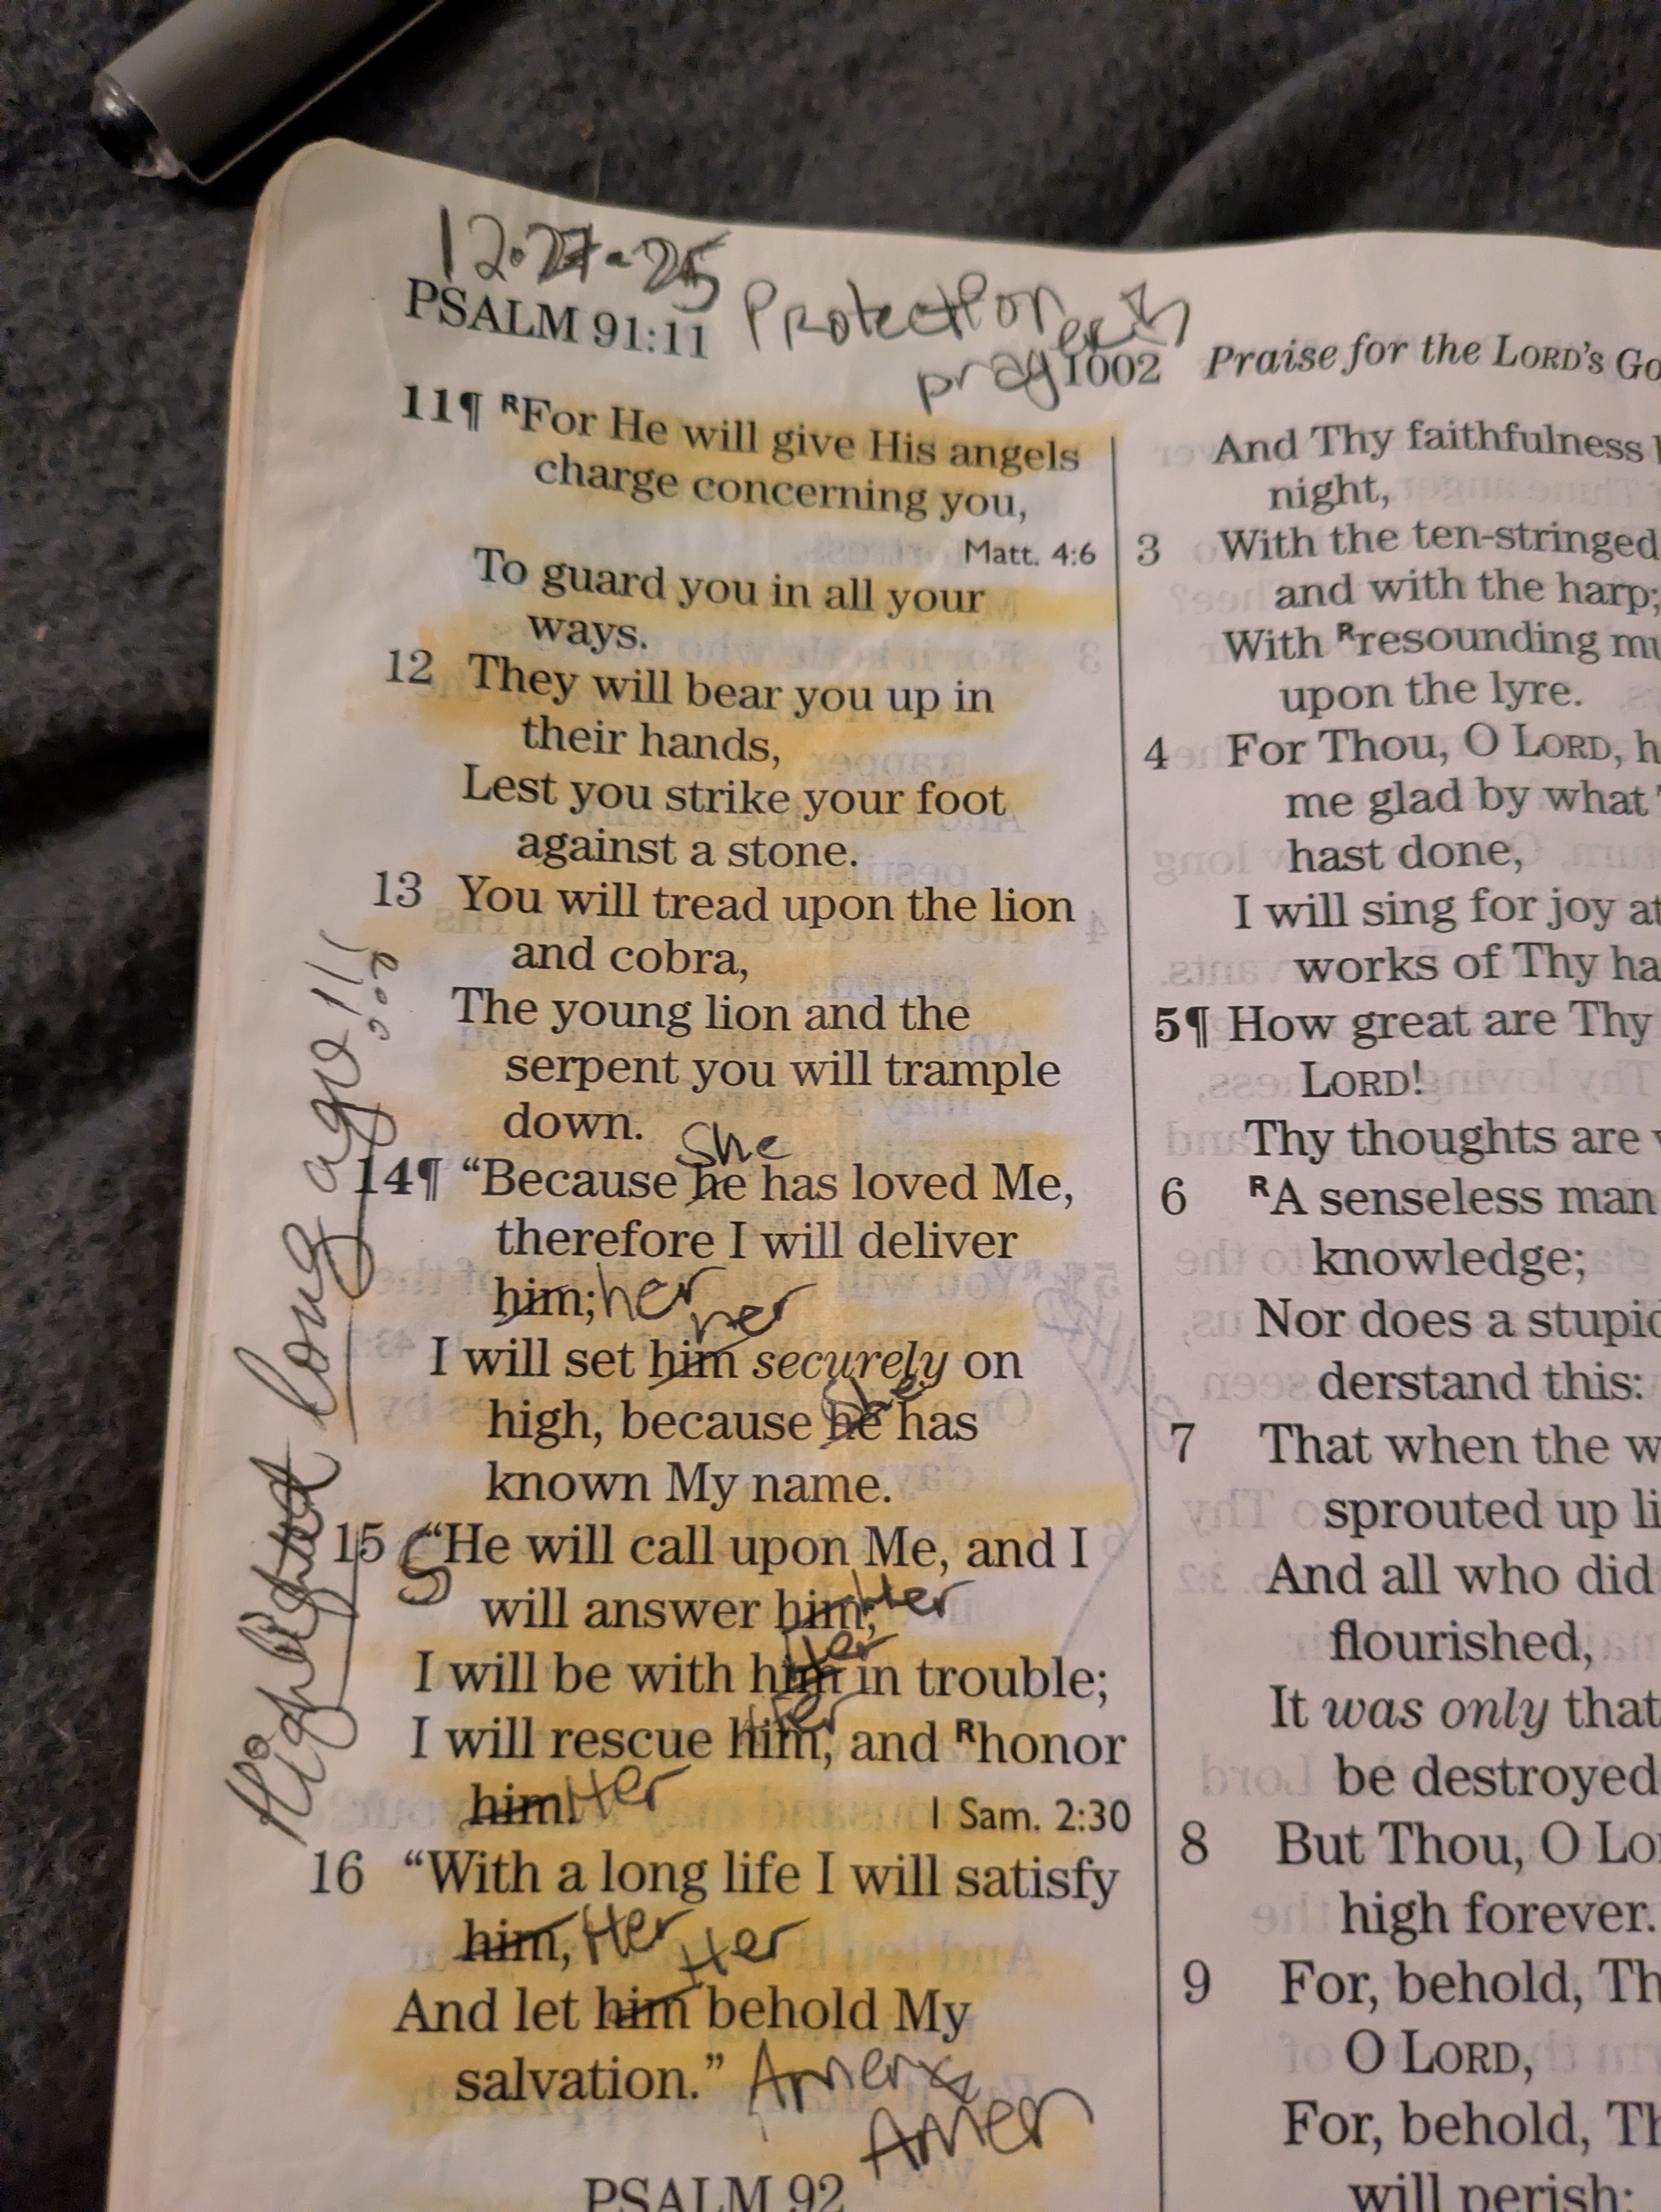 12.27.25
PSALM 91:11 Protection
prayer 1002 Praise for the LORD'S Go
11¶ ᴿFor He will give His angels
charge concerning you,
Matt. 4:6
To guard you in all your
ways.
12 They will bear you up in
their hands,
Lest you strike your foot
against a stone.
13 You will tread upon the lion
and cobra,
The young lion and the
serpent you will trample
down.
she
14¶ “Because he has loved Me,
therefore I will deliver
him; her
her
I will set him securely on
she
high, because he has
known My name.
15 S “He will call upon Me, and I
will answer him; Her
Her
I will be with him in trouble;
Her
I will rescue him, and ᴿhonor
him. Her
1 Sam. 2:30
16 “With a long life I will satisfy
him, Her
Her
And let him behold My
salvation.” Amen
Amen
PSALM 92
Highlighted long ago!!!
And Thy faithfulness
night,
3 With the ten-stringed
and with the harp;
With ᴿresounding mu
upon the lyre.
4 For Thou, O LORD, h
me glad by what
hast done,
I will sing for joy at
works of Thy ha
5¶ How great are Thy
LORD!
Thy thoughts are
6 ᴿA senseless man
knowledge;
Nor does a stupid
derstand this:
7 That when the w
sprouted up li
And all who did
flourished,
It was only that
be destroyed
8 But Thou, O Lo
high forever.
9 For, behold, Th
O LORD,
For, behold, Th
will perish;